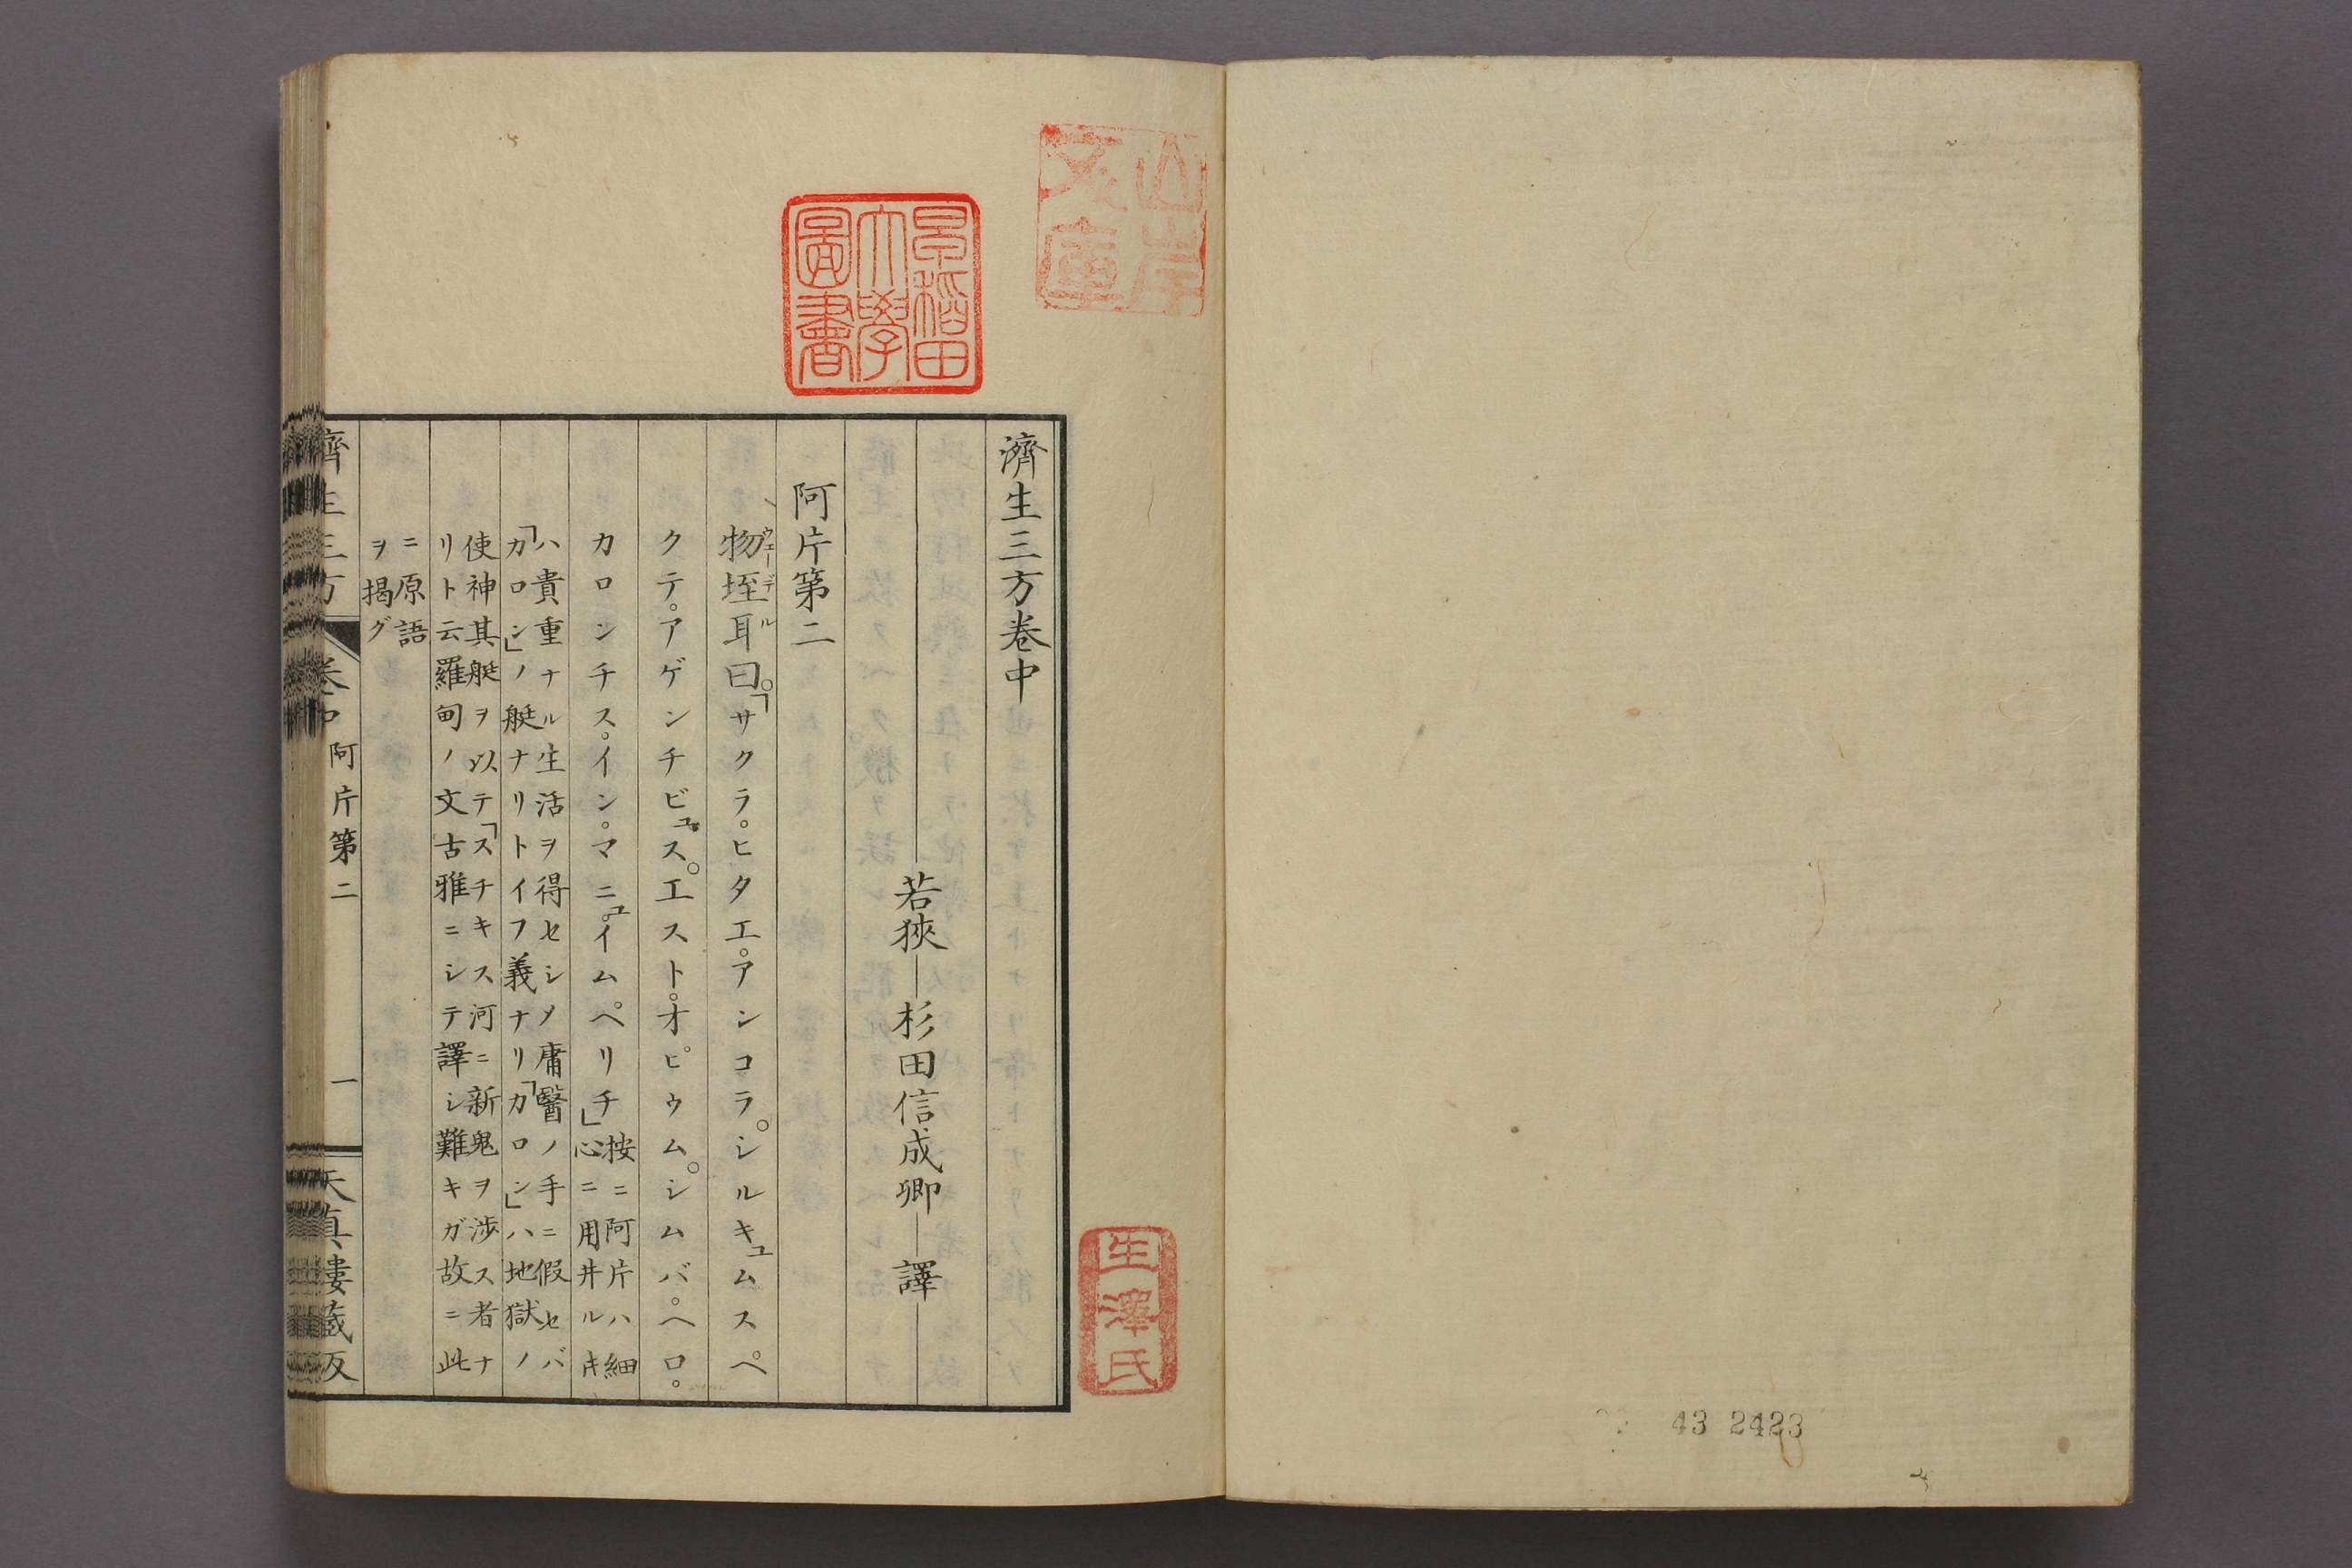 山岸文庫
早稲田大學圖書
濟生三方卷中
若狹 杉田信成卿 譯
阿片第二
物垤耳曰。「サクラ。ヒタエ。アンコラ。シルキュムスペ
ウエーデル
クテ。アゲンチビュス。エスト。オピウム。シムバ。ペロ。
カロンチス。イン。マニュ。イムペリチ」
按ニ阿片ハ細
心ニ用井ルトキ
ハ貴重ナル生活ヲ得セシメ庸醫ノ手ニ假セバ
「カロン」ノ艇ナリトイフ義ナリ「カロン」ハ地獄ノ
使神其艇ヲ以テ「スチキス河ニ新鬼ヲ渉ス者ナ
リト云羅甸ノ文古雅ニシテ譯シ難キガ故ニ此
ニ原語
ヲ揭グ
濟生三方 卷中 阿片第二 一 天真樓藏版
生澤氏
43 2423